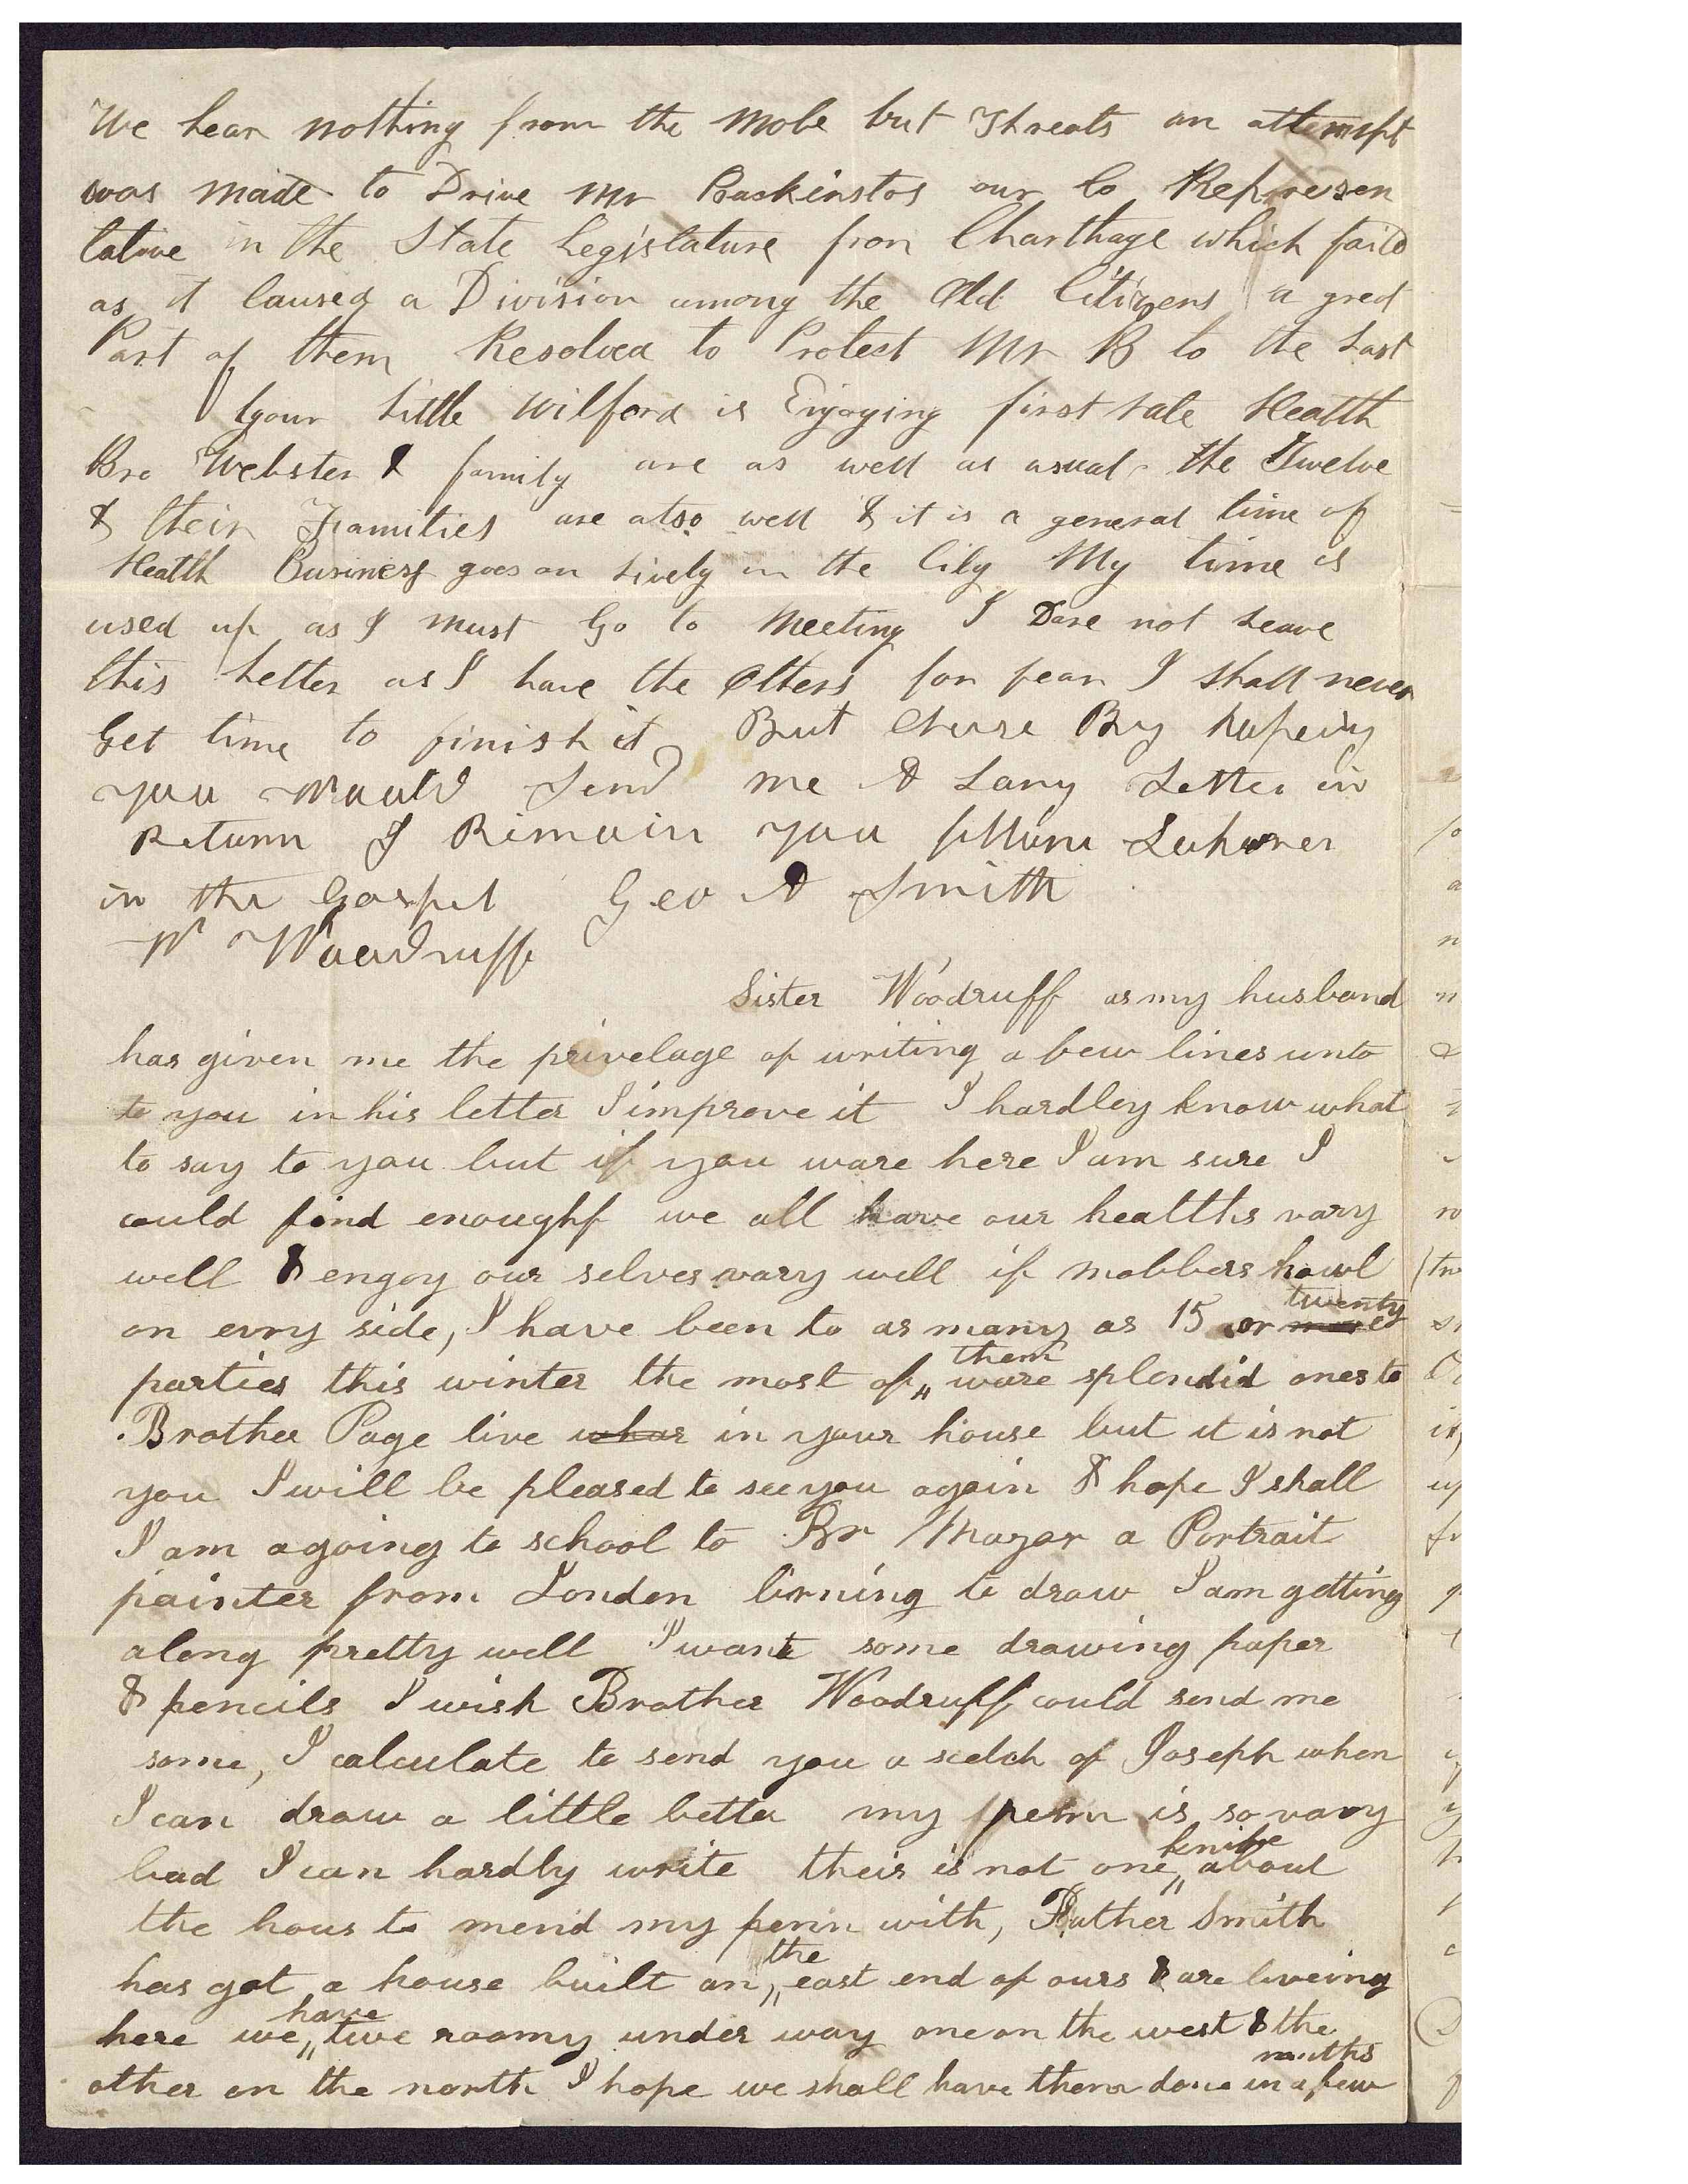 We hear nothing from the Mobe but Threats an attempt
was made to Drive Mr Backinstos our Co Represen
tative in the State Legislature from Charthage which faild
as it Caused a Division among the Old Citizens a gred
Part of them Resolved to Protect Mr B to the Last
Your Little Wilford is Enjoying first rate Health
Bro Webster & family are as well as usual the Twelve
& their Framilies are also well & it is a general time of
Health Business goes on Lively in the City My time is
used up as I must Go to Meeting I Dare not Leave
this Letter as I have the Others for fear I shall never
Get time to finish it But By hopeing
you would Send me A Long Letter in
Return I Remain you
in the Gospel Geo A Smith
W Woodruff
Sister Woodruff as my husband
has given me the privelage of writing a few lines unto
to you in his letter I improve it I hardley know what
to say to you but if you ware here I am sure I
could find enoughf we all have our healths vary
well & engoy our selves vary well if mobbers howl
on evry side, I have been to as many as 15 or twenty
parties this winter the most of them ware splendid ones to
Brother Page live whar in your house but it is not
you I will be pleased to see you again & hope I shall
I am agoing to school to Br Mayar a Portrait
painter from London lirning to draw I am getting
along pretty well I want some drawing paper
& pencils I wish Brother Woodruff could send me
some, I calculate to send you a scetch of Joseph when
I can draw a little better my penn is so vary
bad I can hardly write their is not one knife about
the hous to mend my penn with, Father Smith
has got a house built on the east end of ours & are liveing
here we have two rooms under way one on the west & the
other on the north I hope we shall have them done in a few
months